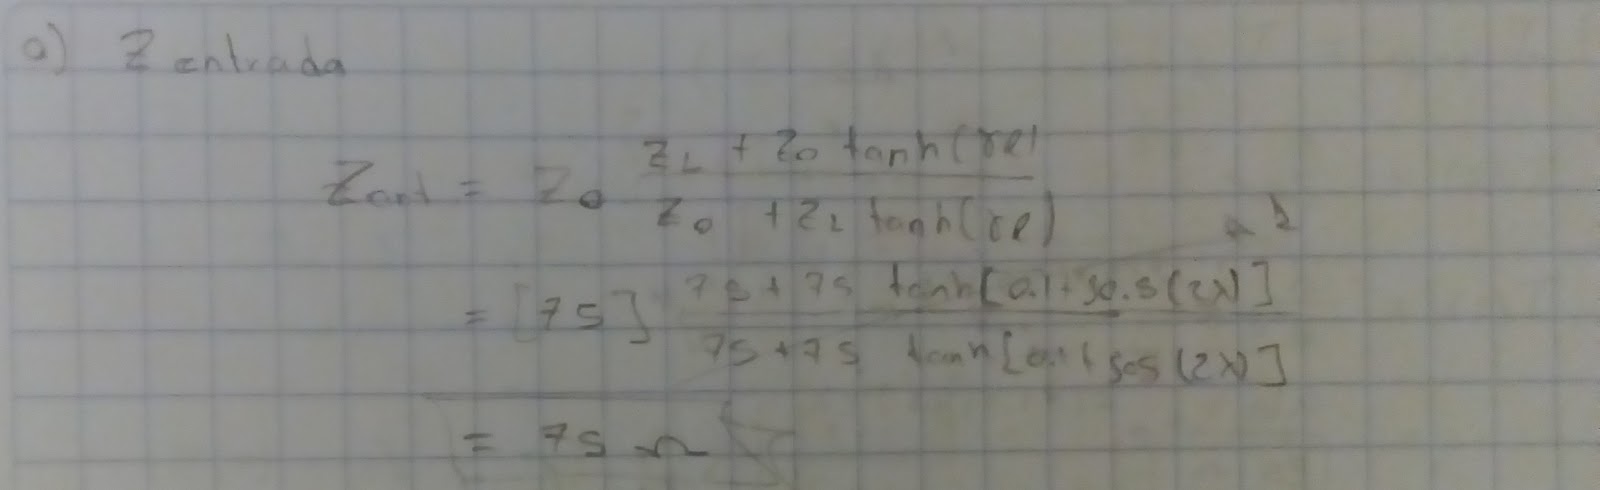 a) Z entrada
Zent = Z0 (ZL + Z0 tanh(γl)) / (Z0 + ZL tanh(γl))
= [75] (75 + 75 tanh[0.1+j0.5(2λ)]) / (75 + 75 tanh[0.1+j0.5(2λ)])
= 75 Ω